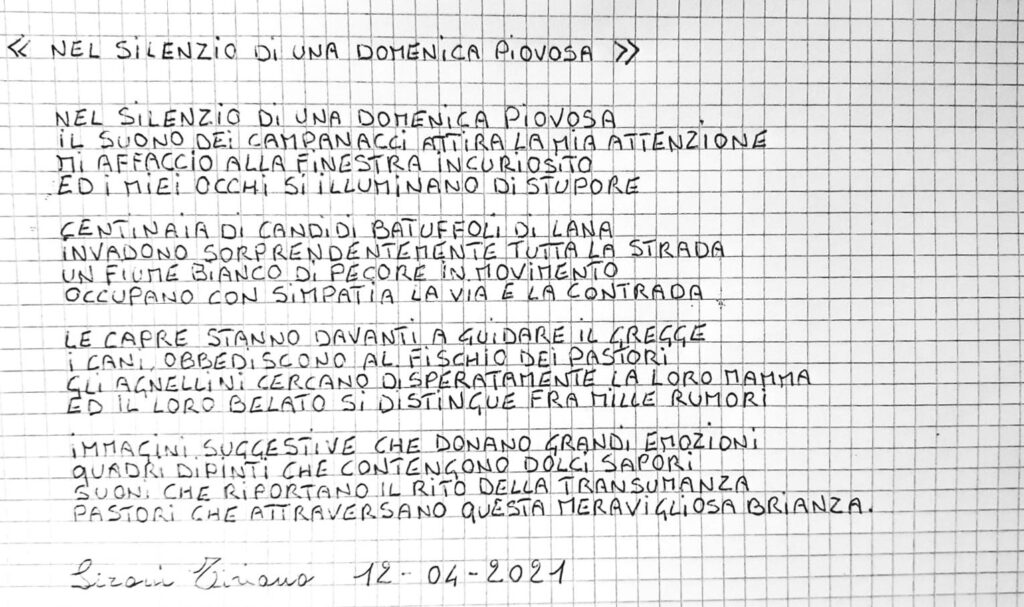 « NEL SILENZIO DI UNA DOMENICA PIOVOSA »
NEL SILENZIO DI UNA DOMENICA PIOVOSA
IL SUONO DEI CAMPANACCI ATTIRA LA MIA ATTENZIONE
MI AFFACCIO ALLA FINESTRA INCURIOSITO
ED I MIEI OCCHI SI ILLUMINANO DI STUPORE
CENTINAIA DI CANDIDI BATUFFOLI DI LANA
INVADONO SORPRENDENTEMENTE TUTTA LA STRADA
UN FIUME BIANCO DI PECORE IN MOVIMENTO
OCCUPANO CON SIMPATIA LA VIA E LA CONTRADA
LE CAPRE STANNO DAVANTI A GUIDARE IL GREGGE
I CANI OBBEDISCONO AL FISCHIO DEI PASTORI
GLI AGNELLINI CERCANO DISPERATAMENTE LA LORO MAMMA
ED IL LORO BELATO SI DISTINGUE FRA MILLE RUMORI
IMMAGINI SUGGESTIVE CHE DONANO GRANDI EMOZIONI
QUADRI DIPINTI CHE CONTENGONO DOLCI SAPORI
SUONI CHE RIPORTANO IL RITO DELLA TRANSUMANZA
PASTORI CHE ATTRAVERSANO QUESTA MERAVIGLIOSA BRIANZA.
12-04-2021